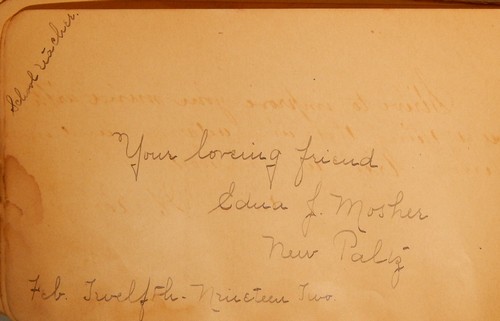 School teacher.
Your loveing friend
Edna J. Mosher
New Paltz
Feb. Twelfth - Nineteen Two.